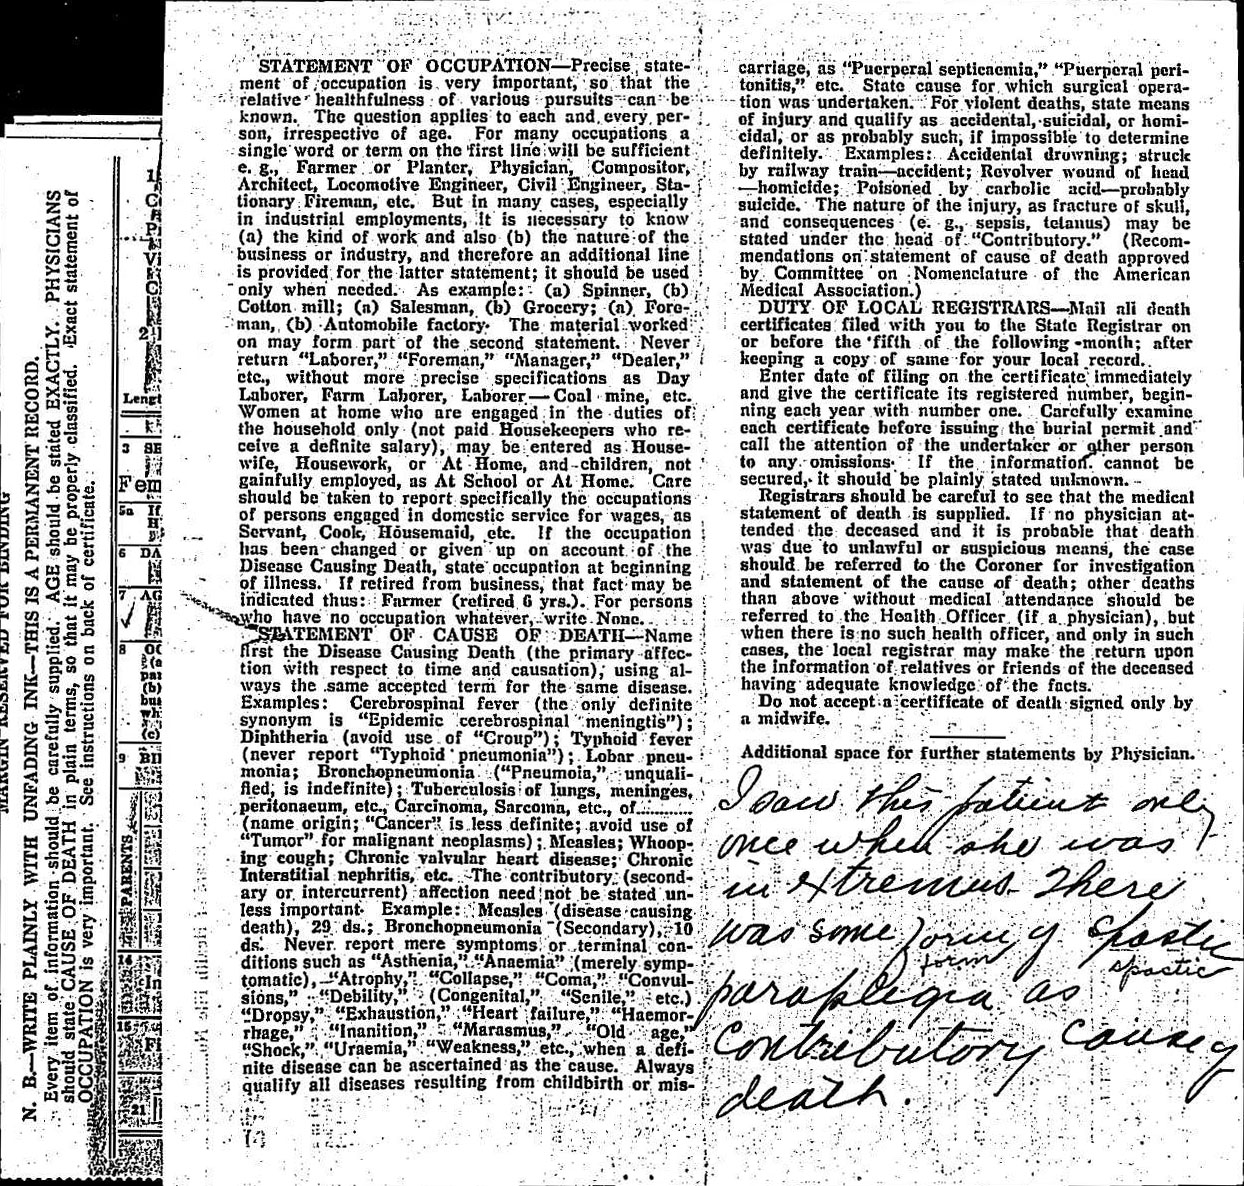 MARGIN RESERVED FOR BINDING
N. B.—WRITE PLAINLY WITH UNFADING INK—THIS IS A PERMANENT RECORD.
Every item of information should be carefully supplied. AGE should be stated EXACTLY. PHYSICIANS
should state CAUSE OF DEATH in plain terms, so that it may be properly classified. Exact statement of
OCCUPATION is very important. See instructions on back of certificate.
Lengt
3 SE
Fem
5a If
6 DA
7 AG
8 OC
(a
par
(b)
bus
wh
(c)
9 BI
PARENTS
15
21
STATEMENT OF OCCUPATION—Precise state-
ment of occupation is very important, so that the
relative healthfulness of various pursuits can be
known. The question applies to each and every per-
son, irrespective of age. For many occupations a
single word or term on the first line will be sufficient
e. g., Farmer or Planter, Physician, Compositor,
Architect, Locomotive Engineer, Civil Engineer, Sta-
tionary Fireman, etc. But in many cases, especially
in industrial employments, it is necessary to know
(a) the kind of work and also (b) the nature of the
business or industry, and therefore an additional line
is provided for the latter statement; it should be used
only when needed. As example: (a) Spinner, (b)
Cotton mill; (a) Salesman, (b) Grocery; (a) Fore-
man, (b) Automobile factory. The material worked
on may form part of the second statement. Never
return "Laborer," "Foreman," "Manager," "Dealer,"
etc., without more precise specifications as Day
Laborer, Farm Laborer, Laborer—Coal mine, etc.
Women at home who are engaged in the duties of
the household only (not paid Housekeepers who re-
ceive a definite salary), may be entered as House-
wife, Housework, or At Home, and children, not
gainfully employed, as At School or At Home. Care
should be taken to report specifically the occupations
of persons engaged in domestic service for wages, as
Servant, Cook, Housemaid, etc. If the occupation
has been changed or given up on account of the
Disease Causing Death, state occupation at beginning
of illness. If retired from business, that fact may be
indicated thus: Farmer (retired 6 yrs.). For persons
who have no occupation whatever, write None.
STATEMENT OF CAUSE OF DEATH—Name
first the Disease Causing Death (the primary affec-
tion with respect to time and causation), using al-
ways the same accepted term for the same disease.
Examples: Cerebrospinal fever (the only definite
synonym is "Epidemic cerebrospinal meningtis");
Diphtheria (avoid use of "Croup"); Typhoid fever
(never report "Typhoid pneumonia"); Lobar pneu-
monia; Bronchopneumonia ("Pneumoia," unquali-
fied, is indefinite); Tuberculosis of lungs, meninges,
peritonaeum, etc., Carcinoma, Sarcoma, etc., of............
(name origin; "Cancer" is less definite; avoid use of
"Tumor" for malignant neoplasms); Measles; Whoop-
ing cough; Chronic valvular heart disease; Chronic
Interstitial nephritis, etc. The contributory (second-
ary or intercurrent) affection need not be stated un-
less important. Example: Measles (disease causing
death), 29 ds.; Bronchopneumonia (Secondary), 10
ds. Never report mere symptoms or terminal con-
ditions such as "Asthenia," "Anaemia" (merely symp-
tomatic), "Atrophy," "Collapse," "Coma," "Convul-
sions," "Debility," (Congenital," "Senile," etc.)
"Dropsy," "Exhaustion," "Heart failure," "Haemor-
rhage," "Inanition," "Marasmus," "Old age,"
"Shock," "Uraemia," "Weakness," etc., when a defi-
nite disease can be ascertained as the cause. Always
qualify all diseases resulting from childbirth or mis-
carriage, as "Puerperal septicaemia," "Puerperal peri-
tonitis," etc. State cause for which surgical opera-
tion was undertaken. For violent deaths, state means
of injury and qualify as accidental, suicidal, or homi-
cidal, or as probably such, if impossible to determine
definitely. Examples: Accidental drowning; struck
by railway train—accident; Revolver wound of head
—homicide; Poisoned by carbolic acid—probably
suicide. The nature of the injury, as fracture of skull,
and consequences (e. g., sepsis, tetanus) may be
stated under the head of "Contributory." (Recom-
mendations on statement of cause of death approved
by Committee on Nomenclature of the American
Medical Association.)
DUTY OF LOCAL REGISTRARS—Mail all death
certificates filed with you to the State Registrar on
or before the fifth of the following month; after
keeping a copy of same for your local record.
Enter date of filing on the certificate immediately
and give the certificate its registered number, begin-
ning each year with number one. Carefully examine
each certificate before issuing the burial permit and
call the attention of the undertaker or other person
to any omissions. If the information cannot be
secured, it should be plainly stated unknown.
Registrars should be careful to see that the medical
statement of death is supplied. If no physician at-
tended the deceased and it is probable that death
was due to unlawful or suspicious means, the case
should be referred to the Coroner for investigation
and statement of the cause of death; other deaths
than above without medical attendance should be
referred to the Health Officer (if a physician), but
when there is no such health officer, and only in such
cases, the local registrar may make the return upon
the information of relatives or friends of the deceased
having adequate knowledge of the facts.
Do not accept a certificate of death signed only by
a midwife.
Additional space for further statements by Physician.
I saw this patient only
once when she was
in extremus. There
was some form of spastic
form spastic
paraplegia as
contributory cause of
death.